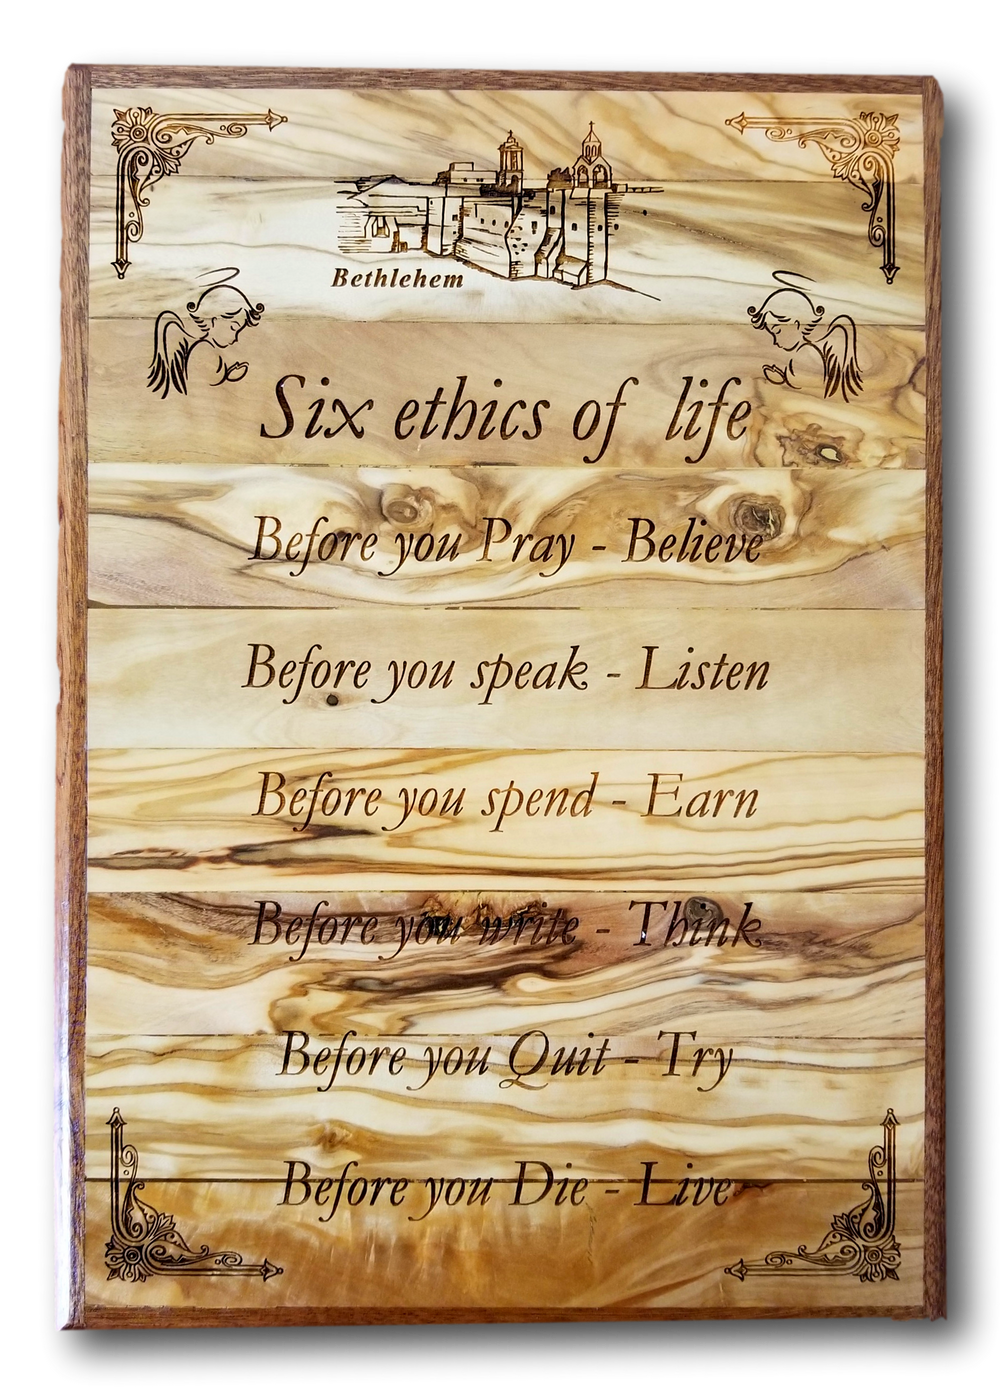 Bethlehem
Six ethics of life
Before you Pray - Believe
Before you speak - Listen
Before you spend - Earn
Before you write - Think
Before you Quit - Try
Before you Die - Live